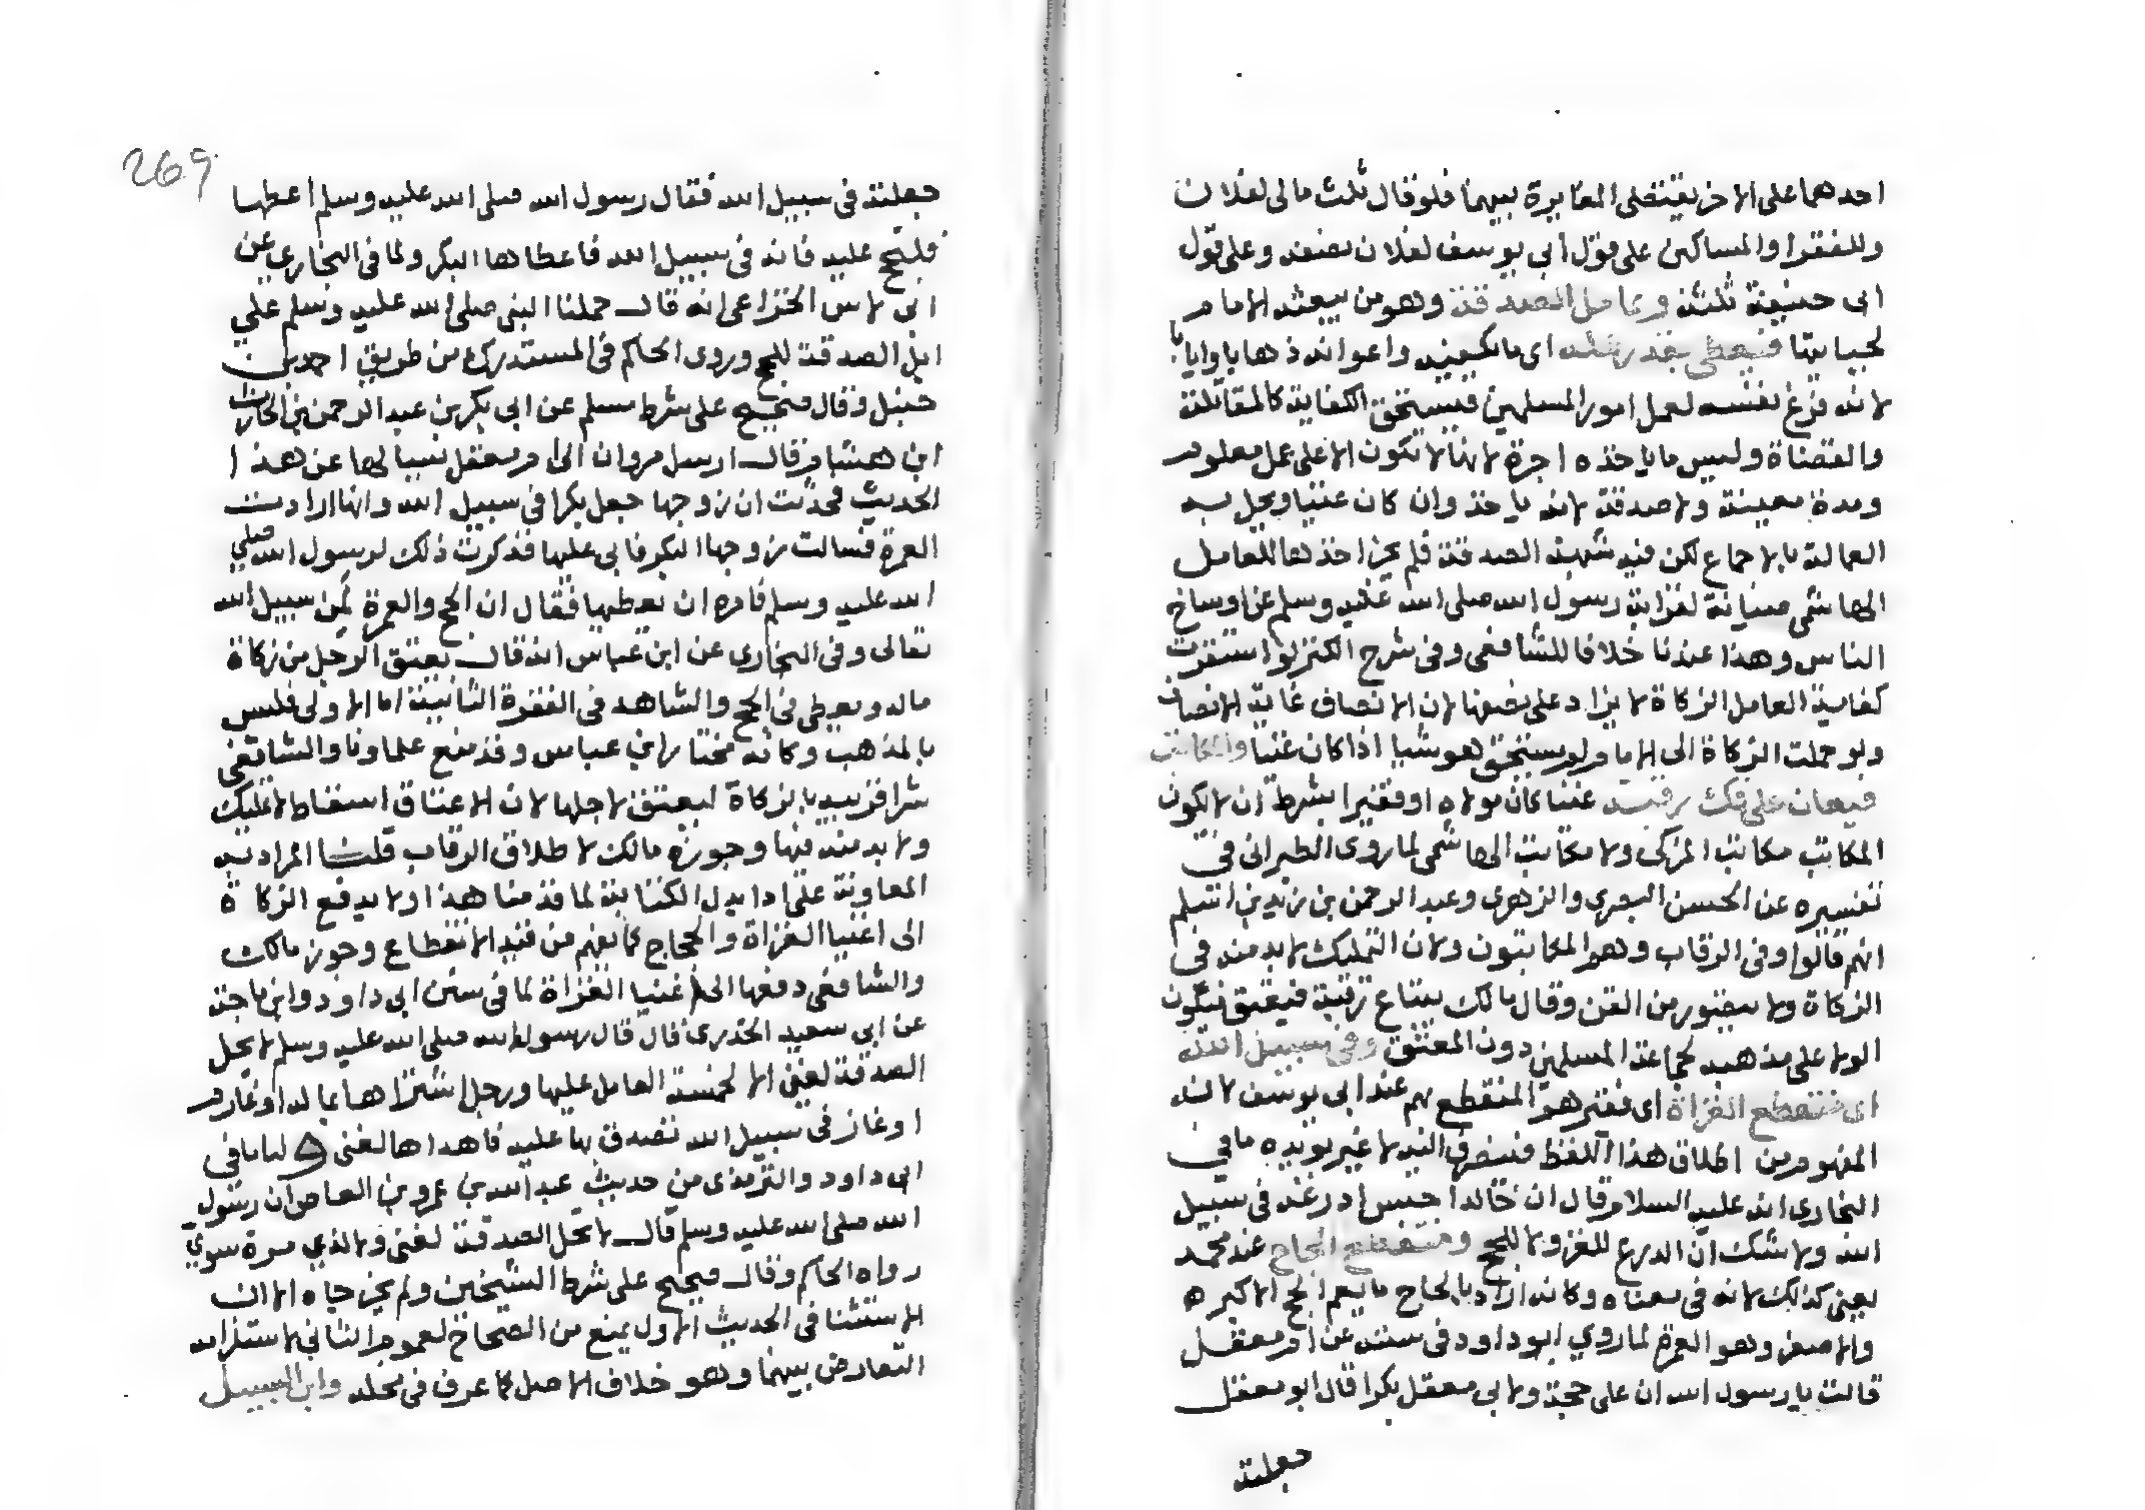 احدهما على الاخر يقتضى المغايرة بينهما فلو قال ثلث مالى لفلان
وللفقرا والمساكين على قول ابى يوسف لفلان نصفه وعلى قول
ابى حنيفة ثلثه وعامل الصدقة وهو من يبعثه الامام
لجبايتها فيعطى بقدر عمله اى ما يكفيه واعوانه ذهابا وايابا
لانه فرغ نفسه لعمل امور المسلمين فيستحق الكفاية كالمقاتلة
والقضاة وليس ما ياخذه اجرة لانها لا تكون الا على عمل معلوم
ومدة معينة ولا صدقة لانه ياخذ وان كان غنيا ويحل به
العمالة بالاجماع لكن فيه شبهة الصدقة فلم يجز اخذها للعامل
الهاشمى صيانة لقرابة رسول الله صلى الله عليه وسلم عن اوساخ
الناس وهذا عندنا خلافا للشافعى وفى شرح الكنز لو استغرقت
كفاية العامل الزكاة لا يزاد على نصفها لان الانصاف غاية الانصاف
ولو حملت الزكاة الى الامام لم يستحق هو شيا اذا كان غنيا والمكاتب
فيعان على فك رقبته غنيا كان مولاه او فقيرا بشرط ان لا يكون
المكاتب مكاتب المزكى ولا مكاتب الهاشمى لما روى الطبرانى فى
تفسيره عن الحسن البصري والزهرى وعبد الرحمن بن زيد بن اسلم
انهم قالوا وفى الرقاب وهم المكاتبون ولان التمليك لا بد منه فى
الزكاة ولا يتصور من القن وقال مالك يبتاع رقبة فيعتق فيكون
الولا على مذهبه لجماعة المسلمين دون المعتق وفى سبيل الله
اى منقطع الغزاة اى فقيرهم المنقطع بهم عند ابى يوسف لانه
المفهوم من اطلاق هذا اللفظ فينصرف اليه لا غير يؤيده ما فى
البخارى انه عليه السلام قال ان خالدا احبس ادرعه فى سبيل
الله ولا شك ان الدرع للغزو لا للحج ومنقطع الحاج عند محمد
يعنى كذلك لانه فى معناه وكانه اراد بالحاج ما يعم الحج الاكبر
والاصغر وهو العمرة لما روي ابو داود فى سننه عن ام معقل
قالت يا رسول الله ان على حجة ولابى معقل بكرا قال ابو معقل
جعلته
269
جعلته فى سبيل الله فقال رسول الله صلى الله عليه وسلم اعطها
فلتحج عليه فانه فى سبيل الله فاعطاها البكر ولما فى البخارى عن
ابى لاس الخزاعى انه قال حملنا النبى صلى الله عليه وسلم علي
ابل الصدقة للحج وروى الحاكم فى المستدرك من طريق احمد بن
حنبل وقال صحيح على شرط مسلم عن ابى بكر بن عبد الرحمن بن الحارث
ابن هشام قال ارسل مروان الى ام معقل يسالها عن هذا
الحديث فحدثت ان زوجها جعل بكرا فى سبيل الله وانها ارادت
العمرة فسالت زوجها البكر فابى عليها فذكرت ذلك لرسول الله صلي
الله عليه وسلم فامره ان يعطيها فقال ان الحج والعمرة لمن سبيل الله
تعالى وفى البخارى عن ابن عباس انه قال يعتق الرجل من زكاة
ماله ويعطى فى الحج والشاهد فى الفقرة الثانية اما الاولى فليس
بالمذهب وكانه مختار ابن عباس وقد منع علماونا والشافعى
شرا قريبه بالزكاة ليعتق لاجلها لان الاعتاق اسقاط لا تمليك
ولا بد منه فيها وجوزه مالك لاطلاق الرقاب قلنا المراد به
المعاونة على ادا بدل الكتابة لما قدمنا هذا ولا يدفع الزكاة
الى اغنيا الغزاة والحجاج كما يفهم من قيد الانقطاع وجوز مالك
والشافعى دفعها الى اغنيا الغزاة لما فى سنن ابى داود وابن ماجة
عن ابى سعيد الخذرى قال قال رسول الله صلى الله عليه وسلم لا يحل
الصدقة لغنى الا لخمسة العامل عليها ورجل اشتراها بماله او غارم
او غاز فى سبيل الله تصدق بها عليه فاهداها لغنى ولنا ما فى
ابى داود والترمذى من حديث عبد الله بن عمرو بن العاص ان رسول
الله صلى الله عليه وسلم قال لا تحل الصدقة لغنى ولا لذي مرة سوي
رواه الحاكم وقال صحيح على شرط الشيخين ولم يخرجاه الا ان
الاستثنا فى الحديث الاول يمنع من لعموم الثانى لاستلزامه
التعارض بينهما وهو خلاف الاصل كما عرف فى محله وابن السبيل